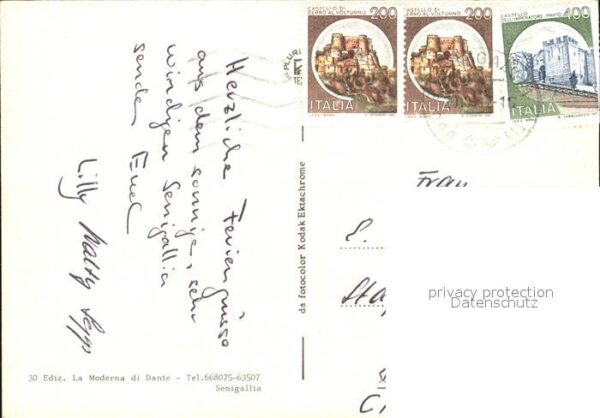 Herzliche Feriengrüsse
aus dem sonnigen, sehr
windigen Senigallia
senden Euch
Lilly
30 Ediz. La Moderna di Dante - Tel.668075-63507
Senigallia
da fotocolor Kodak Ektachrome
CASTELLO DI
CERRO AL VOLTURNO
200
ITALIA
CASTELLO DI
CERRO AL VOLTURNO
200
ITALIA
CASTELLO
DELL'IMPERATORE - PRATO
400
ITALIA
Frau
privacy protection
Datenschutz